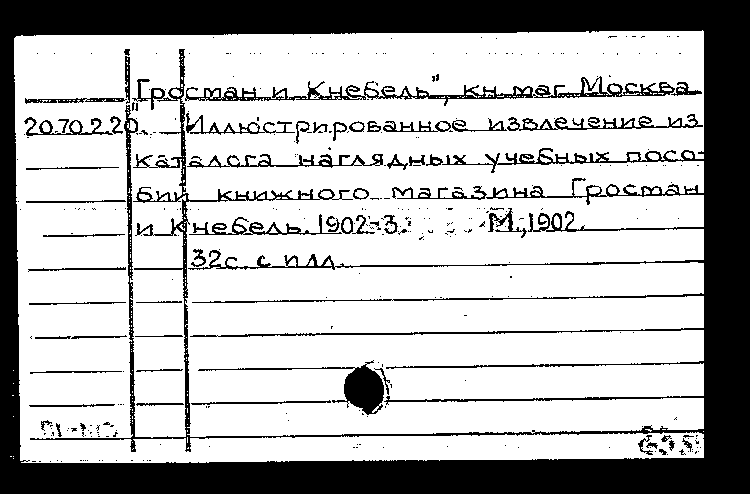 "Гросман и Кнебель", кн. маг. Москва
20.70.2.20. Иллюстрированное извлечение из
каталога наглядных учебных посо-
бий книжного магазина Гросман
и Кнебель. 1902-3. М., 1902.
32с. с илл.